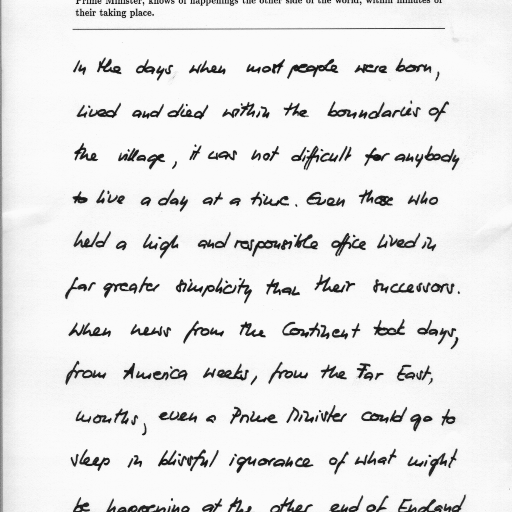 Prime Minister, knows of happenings the other side of the world, within minutes of
their taking place.
In the days when most people were born,
lived and died within the boundaries of
the village, it was not difficult for anybody
to live a day at a time. Even those who
held a high and responsible office lived in
far greater simplicity than their successors.
When news from the Continent took days,
from America weeks, from the Far East,
months, even a Prime Minister could go to
sleep in blissful ignorance of what might
be happening at the other end of England